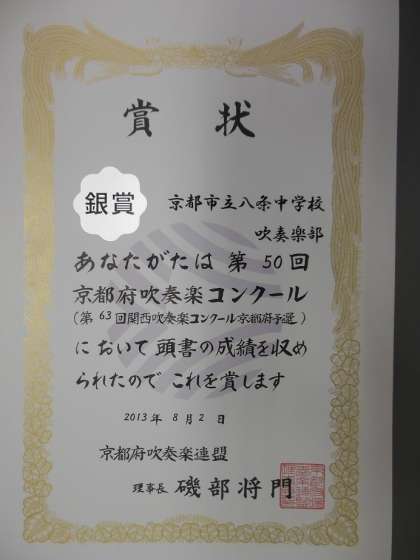 賞状
銀賞
京都市立八条中学校
吹奏楽部
あなたがたは 第 50 回
京都府吹奏楽コンクール
(第 63 回関西吹奏楽コンクール京都府予選)
において頭書の成績を収め
られたので これを賞します
2013 年 8 月 2 日
京都府吹奏楽連盟
理事長 磯部将門